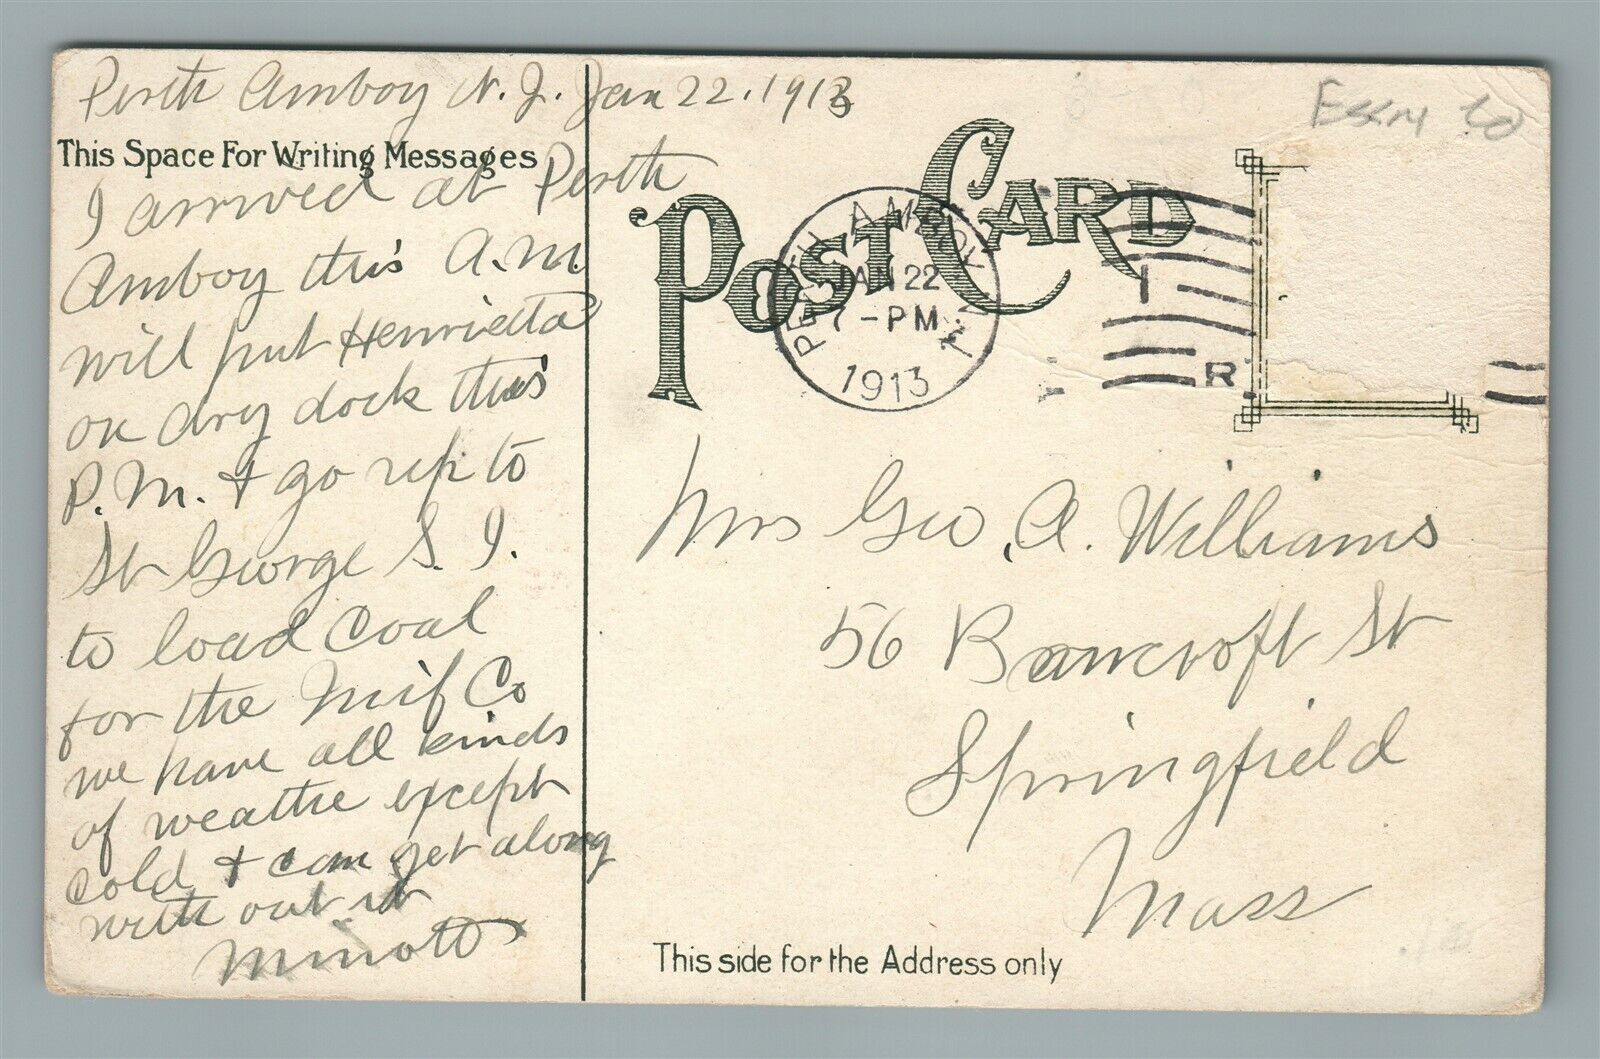 Perth Amboy N. J. Jan 22. 1913
This Space For Writing Messages
I arrived at Perth
Amboy this A.M.
will put Henrietta
on dry dock this
P.M. & go up to
St George S. I.
to load Coal
for the Co
we have all kinds
of weathe except
cold & can get along
with out it
Minott
POST CARD
PERTH AMBOY N.J.
JAN 22
7-PM
1913
R
Mrs Geo. A. Williams
56 Bancroft St
Springfield
Mass
This side for the Address only